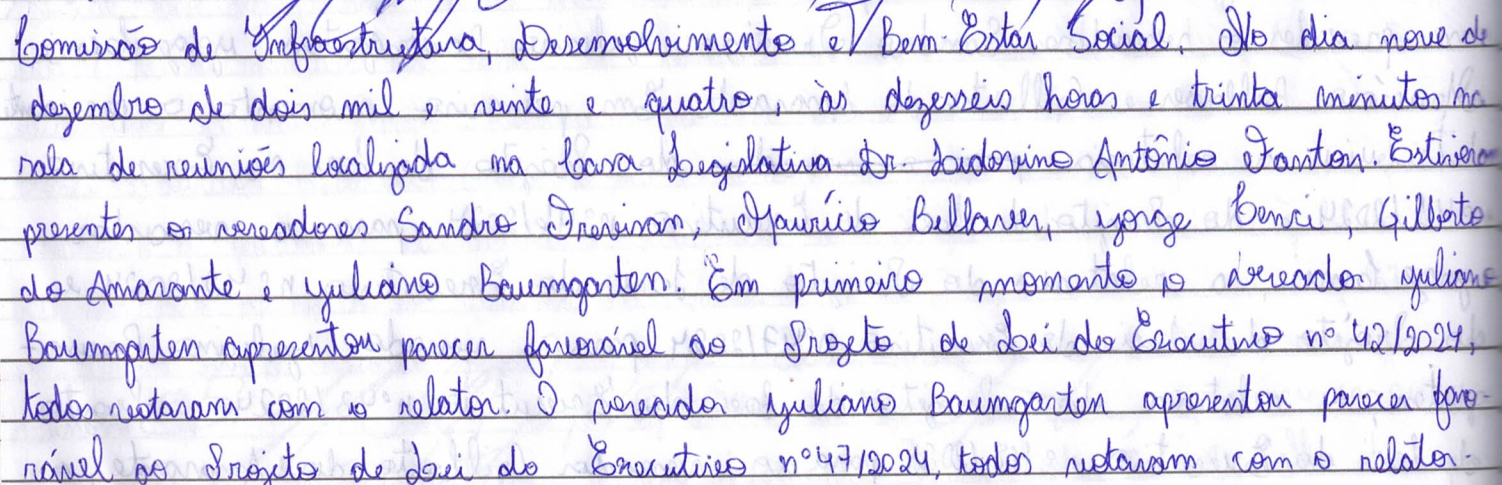 Comissão de Infraestrutura, Desenvolvimento e Bem-Estar Social. No dia nove de
dezembro de dois mil e vinte e quatro, às dezesseis horas e trinta minutos na
sala de reuniões localizada na Casa Legislativa Dr. Ludovino Antônio Fanton. Estiveram
presentes os vereadores Sandro Trevisan, Maurício Bellaver, Jorge Cenci, Gilberto
do Amarante e Juliano Baumgarten. Em primeiro momento o vereador Juliano
Baumgarten apresentou parecer favorável ao Projeto de Lei do Executivo nº 42/2024,
todos votaram com o relator. O vereador Juliano Baumgarten apresentou parecer favo-
rável ao Projeto de Lei do Executivo nº 47/2024, todos votaram com o relator.